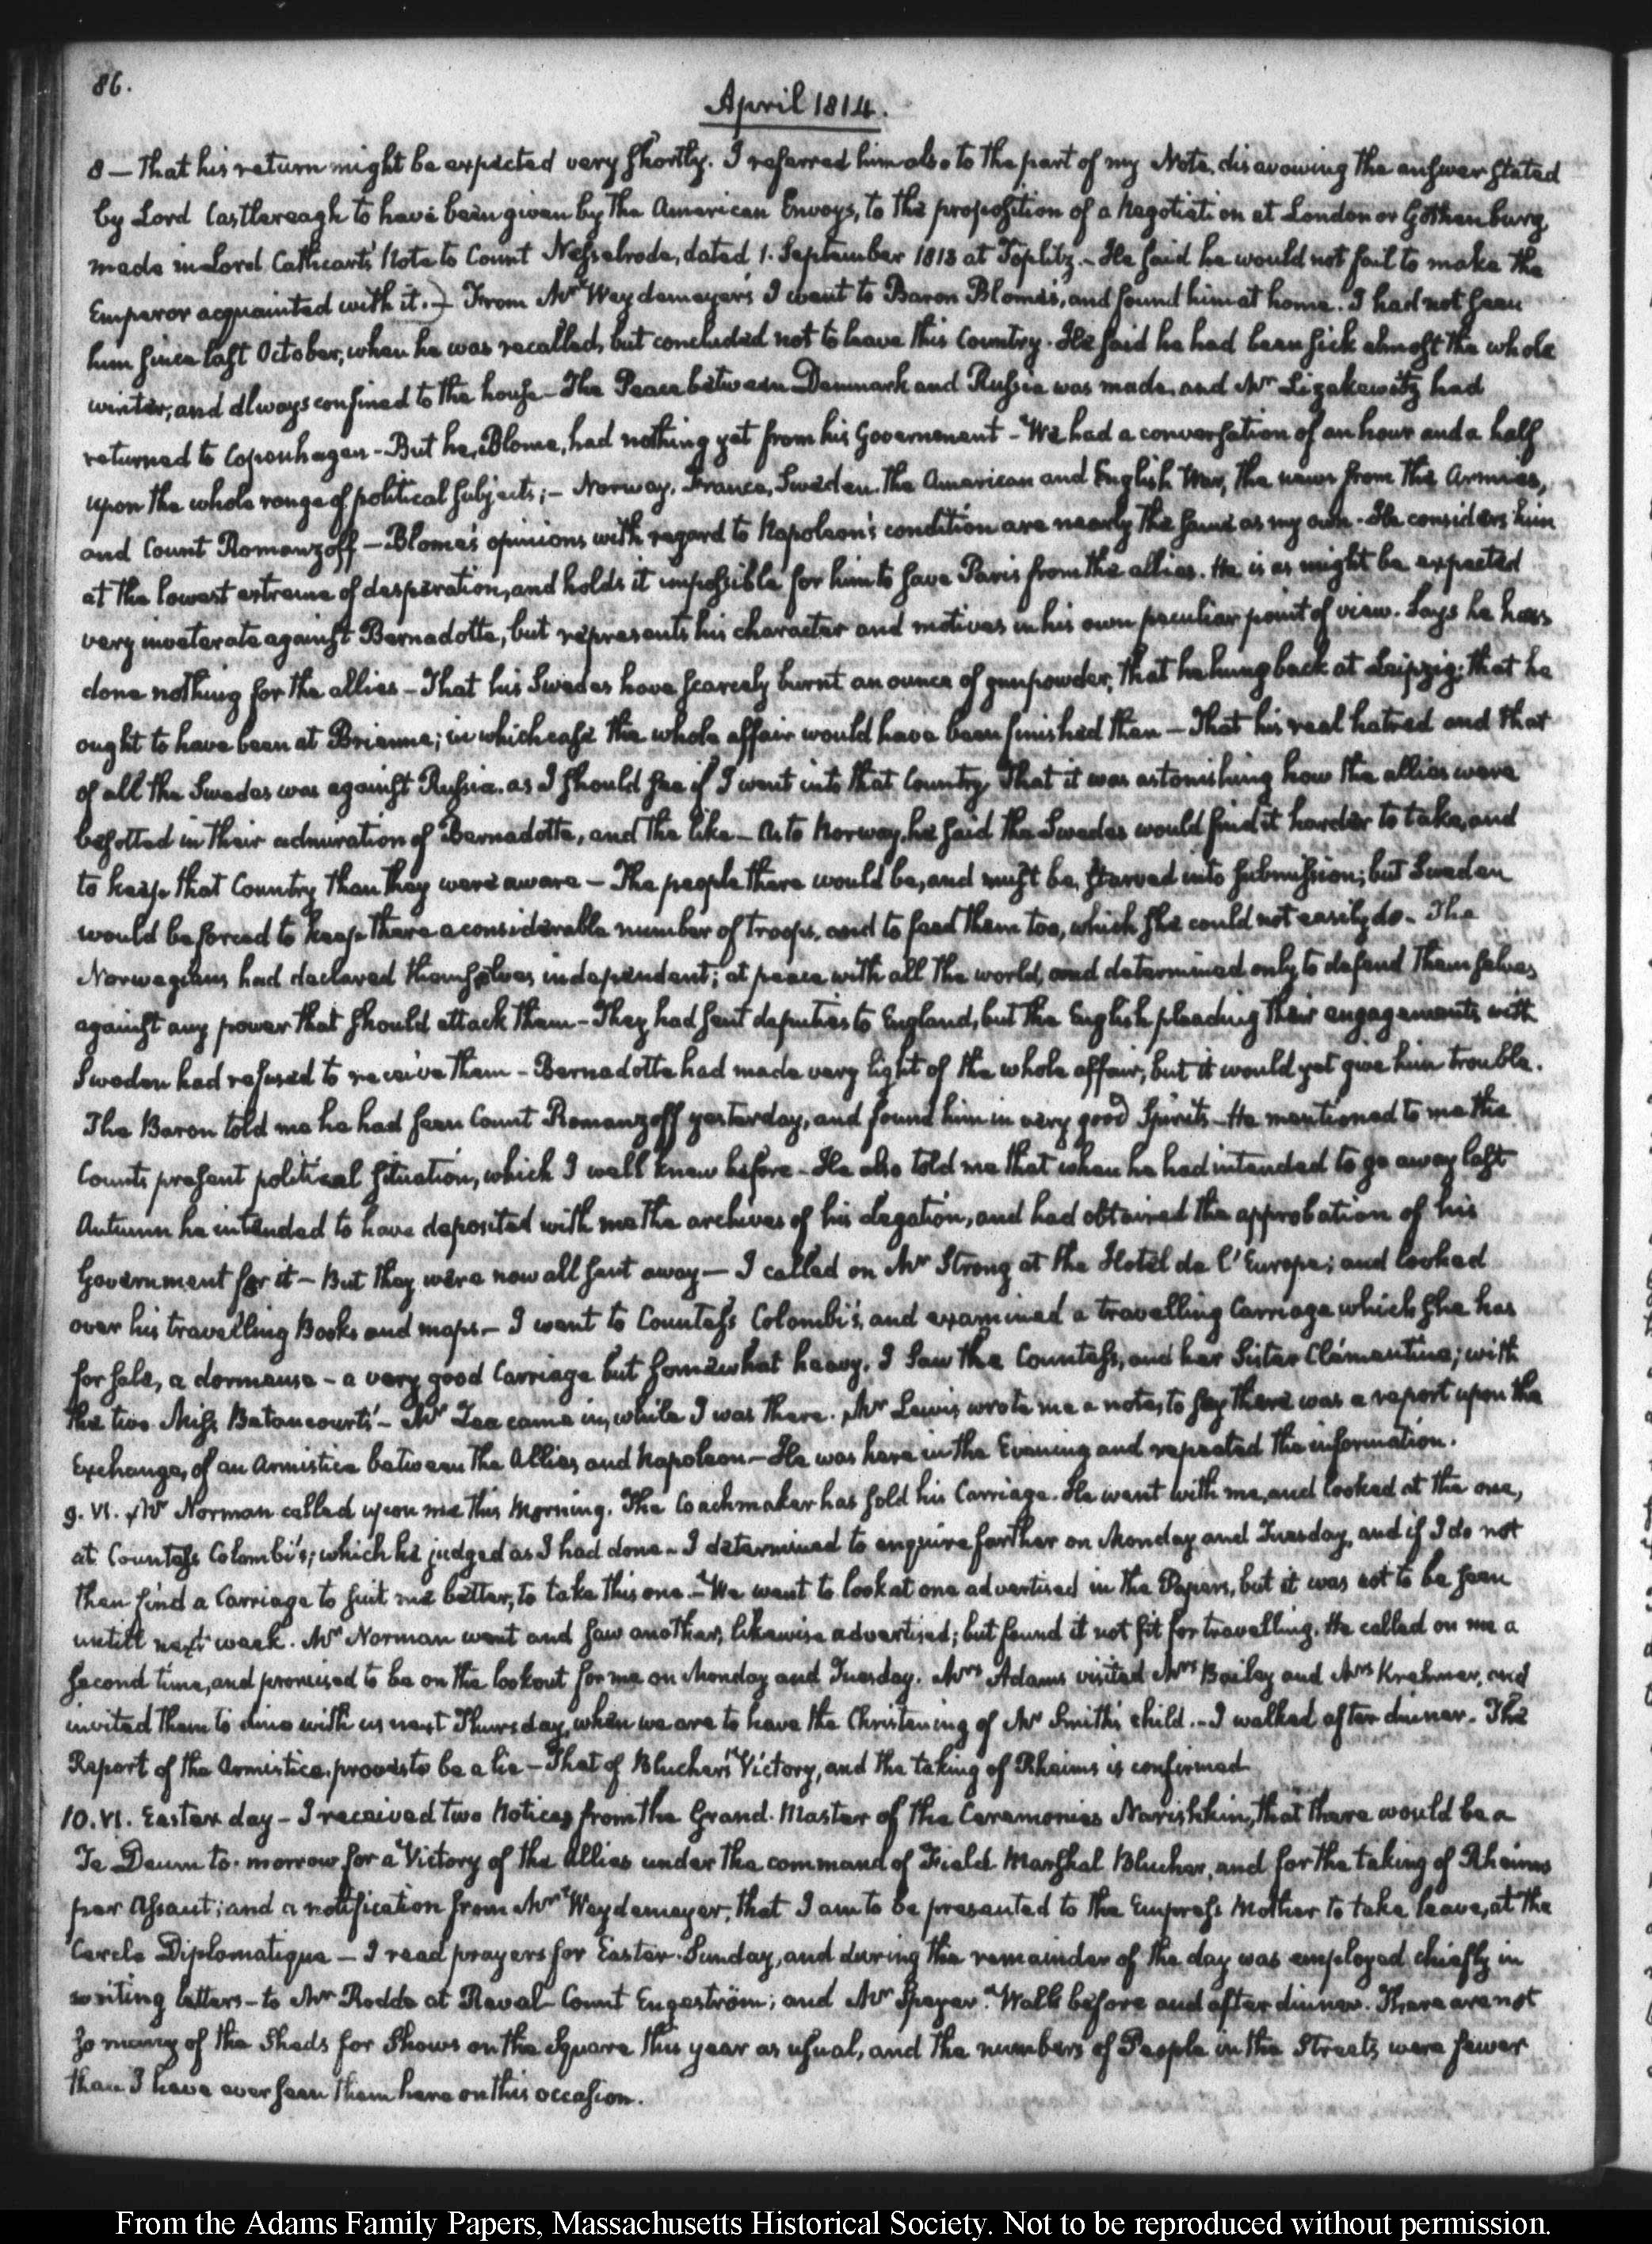 86.
April 1814.
8 — That his return might be expected very shortly. I referred him also to the part of my Note, disavowing the answer stated
by Lord Castlereagh to have been given by the American Envoys, to the proposition of a Negotiation at London or Gothenburg,
made in Lord Cathcart's Note to Count Nesselrode, dated 1. September 1813 at Töplitz. – He said he would not fail to make the
Emperor acquainted with it. – From Mr Weydemeyer's I went to Baron Blome's, and found him at home. I had not seen
him since last October, when he was recalled, but concluded not to leave this Country. He said he had been sick almost the whole
winter, and always confined to the house – The Peace between Denmark and Russia was made, and Mr Lizakewitz had
returned to Copenhagen – But he, Blome, had nothing yet from his Government – We had a conversation of an hour and a half
upon the whole range of political subjects; – Norway, France, Sweden, the American and English War, the news from the Armies,
and Count Romanzoff – Blome's opinions with regard to Napoleon's condition are nearly the same as my own – He considers him
at the lowest extreme of desperation, and holds it impossible for him to save Paris from the allies. He is as might be expected
very inveterate against Bernadotte, but represents his character and motives in his own peculiar point of view. Says he has
done nothing for the allies – That his Swedes have scarcely burnt an ounce of gunpowder; that he hung back at Leipzig; that he
ought to have been at Brienne; in which case the whole affair would have been finished then – That his real hatred and that
of all the Swedes was against Russia, as I should see if I went into that Country, That it was astonishing how the allies were
besotted in their admiration of Bernadotte, and the like – As to Norway, he said the Swedes would find it harder to take, and
to keep that Country than they were aware – The people there would be, and must be, starved into submission; but Sweden
would be forced to keep there a considerable number of troops, and to feed them too, which she could not easily do – The
Norwegians had declared themselves independent; at peace with all the world, and determined only to defend themselves
against any power that should attack them – They had sent deputies to England, but the English pleading their engagements with
Sweden had refused to receive them – Bernadotte had made very light of the whole affair, but it would yet give him trouble.
The Baron told me he had seen Count Romanzoff yesterday, and found him in very good Spirits – He mentioned to me the
Counts present political situation, which I well knew before – He also told me that when he had intended to go away last
Autumn he intended to have deposited with me the archives of his legation, and had obtained the approbation of his
Government for it – But they were now all sent away — I called on Mr Strong at the Hotel de l'Europe; and looked
over his travelling Books and maps – I went to Countess Colombi's, and examined a travelling Carriage which she has
for sale, a dormeuse – a very good Carriage but somewhat heavy. I saw the Countess, and her Sister Clementina; with
the two Miss Betancourts' – Mr Zea came in, while I was there. Mr Lewis wrote me a note, to say there was a report upon the
Exchange, of an Armistice between the Allies and Napoleon – He was here in the Evening and repeated the information.
9. VI. Mr Norman called upon me this Morning. The Coachmaker has sold his Carriage. He went with me, and looked at the one,
at Countess Colombi's; which he judged as I had done – I determined to enquire further on Monday and Tuesday, and if I do not
then find a Carriage to suit me better, to take this one – We went to look at one advertised in the Papers, but it was not to be seen
untill next week. Mr Norman went and saw another, likewise advertised; but found it not fit for travelling. He called on me a
second time, and promised to be on the lookout for me on Monday and Tuesday. Mrs Adams visited Mrs Bailey and Mrs Krehmer, and
invited them to dine with us next Thursday, when we are to have the Christening of Mr Smith's child. – I walked after dinner. The
Report of the Armistice, proves to be a lie – That of Blucher's Victory, and the taking of Rheims is confirmed.
10. VI. Easter day – I received two Notices from the Grand Master of the Ceremonies Narishkin, that there would be a
Te Deum to-morrow for a Victory of the Allies under the command of Field Marshal Blucher, and for the taking of Rheims
par Assaut; and a notification from Mr Weydemeyer, that I am to be presented to the Empress Mother to take leave, at the
Cercle Diplomatique – I read prayers for Easter Sunday, and during the remainder of the day was employed chiefly in
writing letters – to Mr Rodde at Reval – Count Engeström; and Mr Speyer. Walk before and after dinner. There are not
so many of the Sheds for Shows on the Square this year as usual, and the numbers of People in the Streets were fewer
than I have ever seen them here on this occasion.
From the Adams Family Papers, Massachusetts Historical Society. Not to be reproduced without permission.